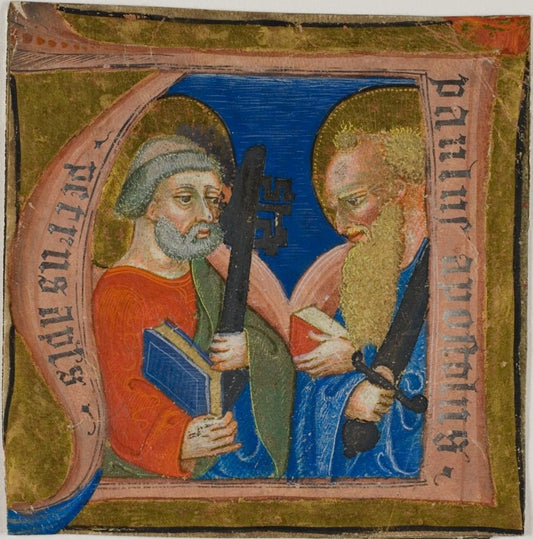 petrus apls
paulus apostolus